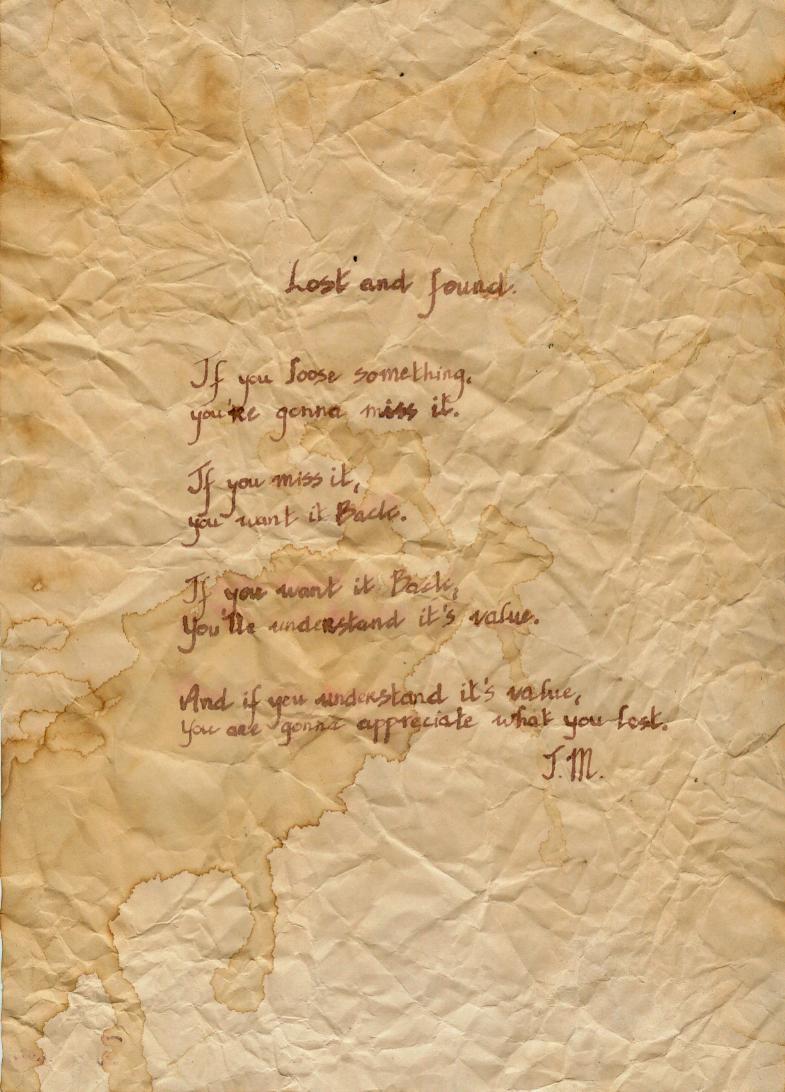 Lost and found.
If you loose something,
you're gonna miss it.
If you miss it,
you want it Back.
If you want it Back,
You'lle understand it's value.
And if you understand it's value,
You are gonna appreciate what you lost.
J.M.